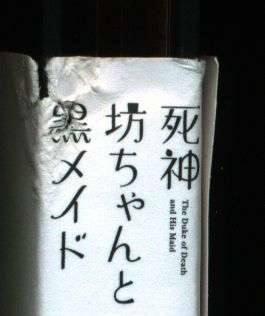 死神
坊ちゃんと
黒メイド
The Duke of Death
and His Maid